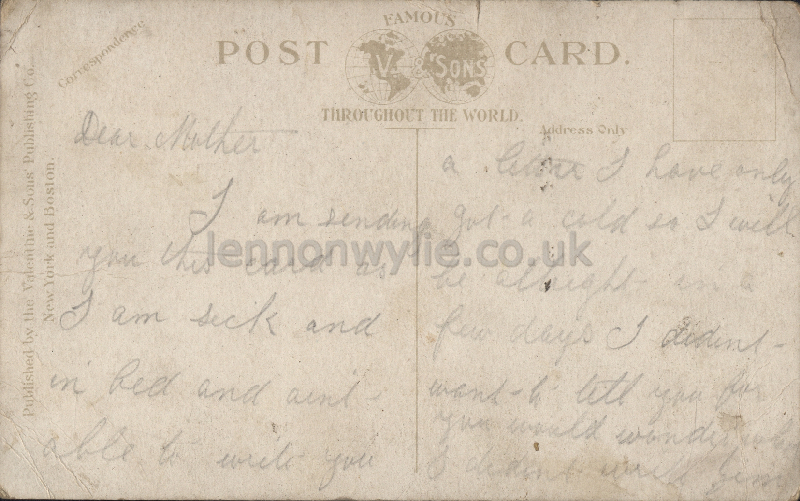 FAMOUS
POST CARD.
V. & SONS
THROUGHOUT THE WORLD.
Correspondence
Address Only
Published by the Valentine & Sons' Publishing Co.
New York and Boston.
Dear Mother
I am sending
you this card as
I am sick and
in bed and aint
able to write you
a letter I have only
got a cold so I will
be allright in a
few days I didint
want to tell you for
you would wonder why
I didint write
lennonwylie.co.uk